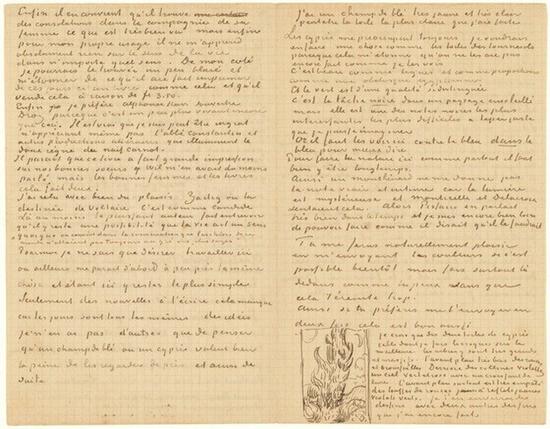 Enfin il en convient qu'il trouve
des consolations dans la compagnie de sa
femme ce qui est très bien vu mais enfin
pour mon propre usage il ne m'apprend
absolument rien sur le sens de la vie
dans n'importe quel sens. De mon coté
je pourrais le trouver un peu blasé et
m'étonner de ce qu'il ait fait imprimer
de ces jours ci un livre comme celui et qu'il
vende cela à raison de fr 3.50.
Enfin je préfère Alphonse Karr Souvestre
Droz parceque c'est un peu plus vivant encore
que ceci. Il est vrai que je suis peut être ingrat
n'appréciant même pas l'abbé Constantin et
autres productions littéraires qui illuminent le
doux règne du naif Carnot.
Il parait que ce livre a fait grande impression
sur nos bonnes soeurs. Wil m'en avait du moins
parlé mais les bonnes femmes et les livres
cela fait deux.
J'ai relu avec bien du plaisir Zadig ou la
destinée de Voltaire. C'est comme Candide
Là au moins le puissant auteur fait entrevoir
qu'il y reste une possibilité que la vie ait un sens
quoiqu'on convint dans la conversation que les choses de ce
monde n'allaient pas toujours au gré des plus sages.
Pour moi je ne sais que désirer travailler ici
ou ailleurs me parait d'abord à peu près la même
chose et étant ici y rester le plus simple
Seulement des nouvelles à t'écrire cela manque
car les jours sont tous les mêmes des idées
je n'en ai pas d'autres que de penser
qu'un champ de blé ou un cyprès valent bien
la peine de les regarder de près et ainsi de
suite
J'ai un champ de blé très jaune et très clair
peut être la toile la plus claire que j'aie faite
Les cyprès me préoccupent toujours je voudrais
en faire une chose comme les toiles des tournesols
parceque cela m'étonne qu'on ne les ait pas
encore fait comme je les vois
C'est beau comme lignes et comme proportions
comme une obélisque égyptienne
Et le vert est d'une qualité si distinguée
C'est la tache noire dans un paysage ensoleillé
mais elle est une des notes noires les plus
interessantes les plus difficiles à taper juste
que je puisse imaginer
Or il faut les voir ici contre le bleu dans le
bleu pour mieux dire
Pour faire la nature ici comme partout il faut
bien y être longtemps.
Ainsi un Monthénard ne me donne pas
la note vraie et intime car la lumière
est mystérieuse et Monticelli et Delacroix
sentaient cela. Alors Pissarro en parlait
très bien dans le temps et je suis encore bien loin
de pouvoir faire comme il disait qu'il faudrait
Tu me feras naturellement plaisir
en m'envoyant les couleurs si c'est
possible bientôt mais fais surtout là
dedans comme tu peux sans que
cela t'éreinte trop.
Ainsi si tu préfères me l'envoyer en
deux fois cela est bon aussi
je crois que des deux toiles de cyprès
celle dont je fais le croquis sera la
meilleure les arbres y sont très grands
et massifs l'avant plan très bas des ronces
et broussailles Derrière des collines violettes
un ciel vert et rose avec un croissant de
lune L'avant plan surtout est très empâté
des touffes de ronces à reflets jaunes
violets verts. je t'en enverrai des
dessins avec deux autres dessins
que j'ai encore faits